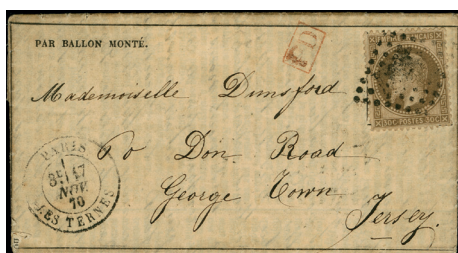 PAR BALLON MONTÉ.
PD
Mademoiselle Dunsford
60 Don Road
George Town
Jersey.
PARIS
17
NOV.
70
LES TERNES
30C POSTES 30C